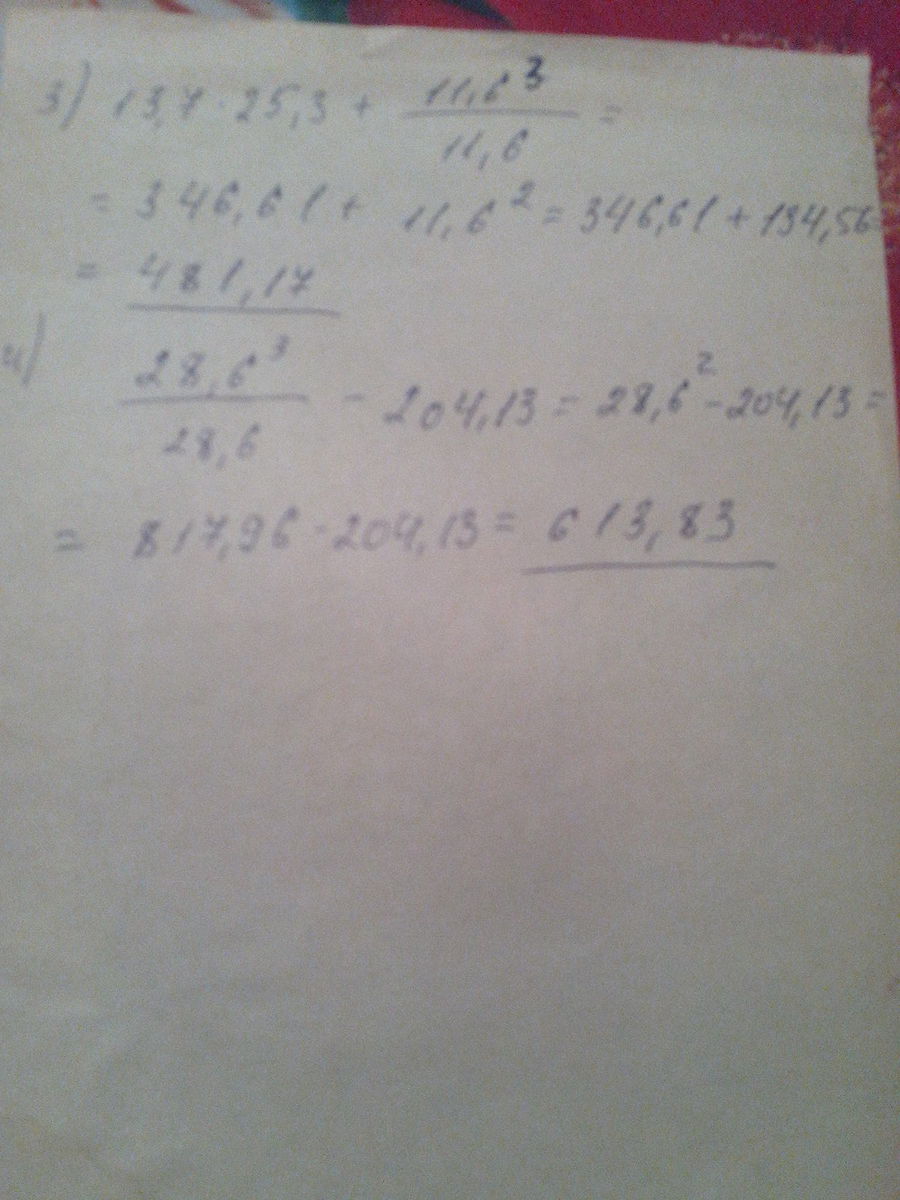 3) 13,7 · 25,3 + 11,6³/11,6 =
= 346,61 + 11,6² = 346,61 + 134,56
= 481,17
4) 28,6³/28,6 - 204,13 = 28,6² - 204,13 =
= 817,96 - 204,13 = 613,83